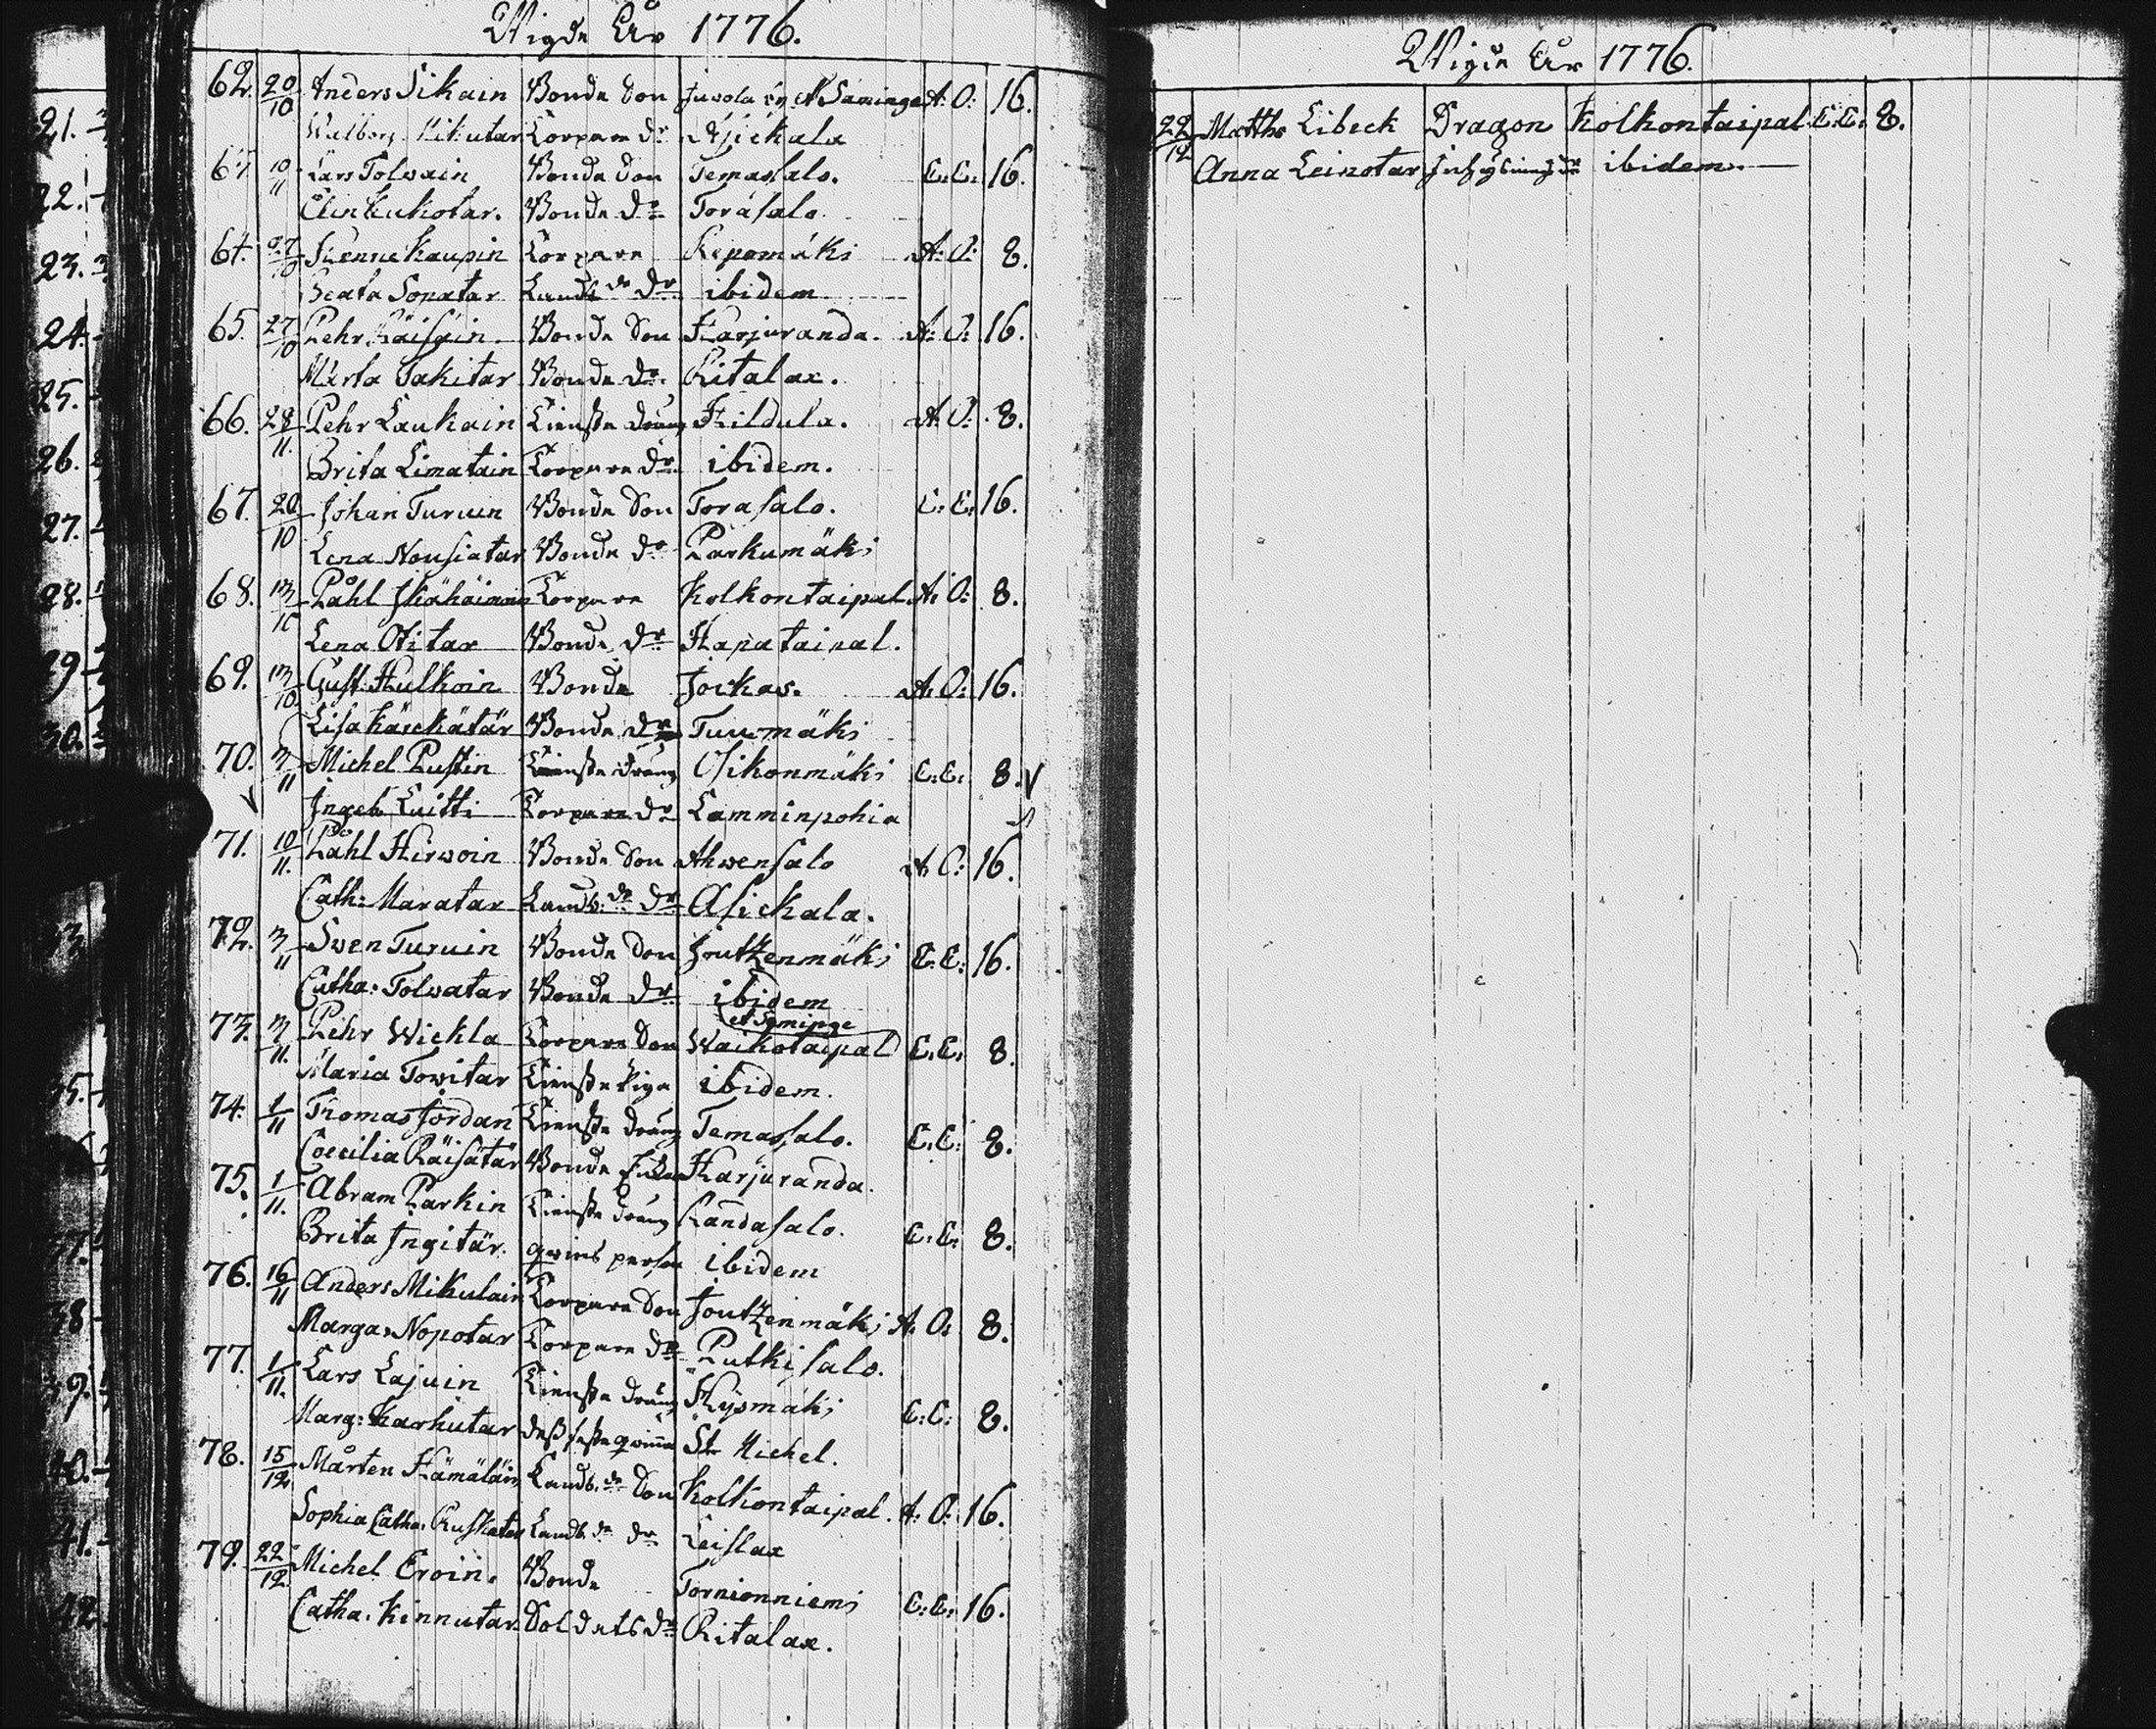 Wigde År 1776.
62. 20/10 Anders Sikain Bonde Son Juvola by N Säminge A: O: 16.
Walborg Mikutar Torpare dr Asickala
63. 10/11 Lars Tolwain Bonde Son Temassalo. C: E: 16.
Elin Kukotar. Bonde dr Torasalo
64. 27/10 Henric Kaupin Torpare Repomäki A: O: 8.
Beata Sopatar Landb de dr ibidem
65. 27/10 Pehr Räisäin. Bonde Son Harjuranda. A: O: 16.
Märta Takitar Bonde dr. Ritalax.
66. 28/11. Pehr Laukain Tienste dräng Hildula. A: O: 8.
Brita Limatain Torpare dr. ibidem.
67. 20/10 Johan Turuin Bonde Son Torasalo. C: E: 16.
Lena Nousiatar Bonde dr Parkumäki
68. 13/10 Påhl Torpare Kolkontaipal A: O: 8.
Lena Otitar Bonde dr Hapataipal.
69. 13/10. Gust: Hulkoin Bonde Jockas. A: O: 16.
Lisa Käickätär Bonde dr Tuusmäki
70. 3/11 Michel Pustin Tienste dräng Osikonmäki C: E: 8. V
Ingeb. Luitti Torpare dr Lamminpohia
71. 10/11. Påhl Hirwoin Bonde Son Ahwensalo A: O: 16.
Cath: Maratar Landb: de dr Asickala.
72. 3/11 Swen Turuin Bonde Son Joutzenmäki C: E: 16.
Catha: Tolwatar Bonde dr ibidem
N Säminge
73. 3/11. Pehr Wickla Torpare Son Waikotaipal C: E: 8.
Maria Towitar Tienste Piga ibidem.
74. 1/11 Thomas Jordan Tienste dräng Temassalo. C: E: 8.
Coecilia Räisätär Bonde Enka Harjuranda.
75. 1/11. Abram Parkin Tienste dräng Randasalo. C: E: 8.
Brita Ingitär. qwins person ibidem
76. 16/11 Anders Mikulain Torpare Son Joutzenmäki A: O: 8.
Marga: Nopotar Torpare dr Putkisalo.
77. 1/11. Lars Lajuin Tienste dräng Hysmäki C: E: 8.
Marg: Karhutar qwinna St Michel.
78. 15/12 Mårten Hämäläin Landb. de Son Kolkontaipal. A: O: 16.
Sophia Catha. Ruskatar Landb de dr Leislax
79. 22/12. Michel Eroin. Bonde Tornionniemi C: E: 16.
Catha. Kinnutar Soldats dr Ritalax.
Wigde År 1776.
22/12 Matths Libeck Dragon Kolkontaipal C: E: 8.
Anna Leinotar Inhysinngs dr ibidem.
21.
22.
23.
24.
25.
26.
27.
28.
29
30.
33
35.
37.
38
39.
40.
41.
42.